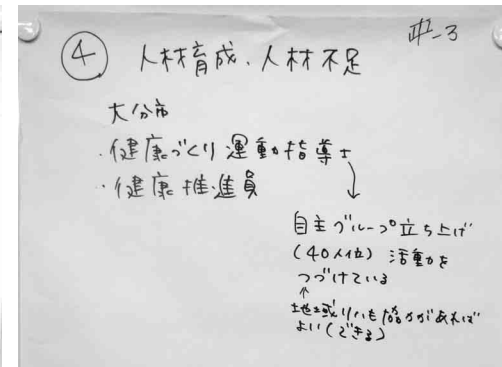 ④ 人材育成、人材不足
大分市
・健康づくり運動指導士
・健康推進員
↓
自主グループ立ち上げ
(40人位) 活動を
つづけている
↑
地域リハも協力があれば
よい(できる)